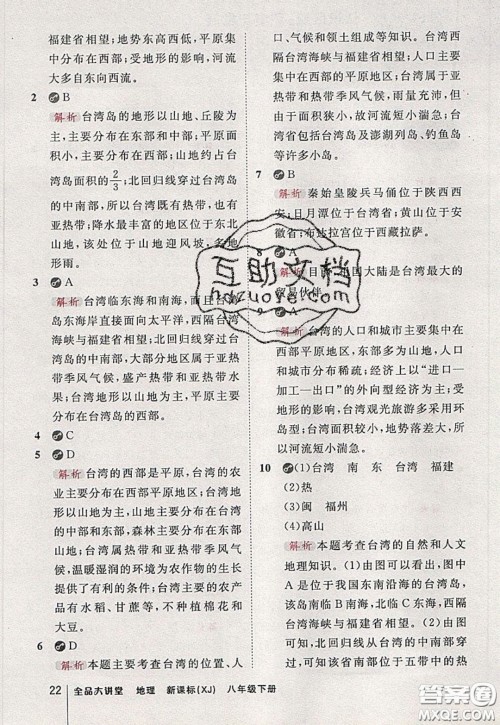 福建省相望;地势东高西低,平原集
中分布在西部;受地形的影响,河流
大多自东向西流。
2 B
解析 台湾岛的地形以山地、丘陵为
主,主要分布在东部和中部;平原
面积小,主要分布在西部;山地约占台
湾岛面积的2/3;北回归线穿过台湾岛
的中南部,所以台湾既有热带,也有
亚热带;降水最丰富的地区位于东北
山地,该处位于山地迎风坡,多地
形雨。
3 A
解析 台湾临东海和南海,而且台湾
岛东海岸直接面向太平洋,西隔台湾
海峡与福建省相望;北回归线穿过台
湾的中南部,以热带、亚热带季风气
候为主,盛产热带和亚热带水果;平
原主要分布在台湾岛的西部。
4 C
5 D
解析 台湾的西部是平原,台湾的农
业主要分布在西部平原地区;台湾地
形以山地为主,且主要分布在台湾的
中东部,森林主要分布在东部山地;
台湾属热带和亚热带季风气候,高
温、温暖湿润的环境为农作物的生长
提供了有利的条件;台湾主要农作物
有水稻、甘蔗等,不种植棉花和
大豆。
6 D
解析 本题主要考查台湾的位置、人
口、气候和领土组成等知识。台湾西
隔台湾海峡与福建省相望;人口主要
集中分布在西部平原地区;气候属于
亚热带和热带季风气候,雨量充沛,但
由于面积狭小,故河流短小湍急;台
湾省包括台湾岛及澎湖列岛、钓鱼岛
等许多小岛。
7 B
解析 秦始皇陵兵马俑位于陕西西
安;日月潭位于台湾省;黄山位于安
徽省;布达拉宫位于西藏拉萨。
8 A
解析 目前,祖国大陆是台湾最大的
贸易伙伴。
9 A
解析 台湾的人口和城市主要集中在
西部平原地区;东部多山地,人口和
城市分布稀疏;经济上以“进口—
加工—出口”的外向型经济为主;受
地形的影响,台湾观光旅游多采用环
岛型;台湾山地面积大,岛屿面积小,
所以河流短小湍急。
10 (1)台湾 南 东 台湾 福建
(2)热
(3)闽 福州
(4)高山
解析 本题考查台湾的自然和人文
地理知识。(1)由图可以看出,图中
A是位于我国东南沿海的台湾岛,该
岛南临B南海,北临C东海,西隔
台湾海峡与福建省相望。(2)由图可
知,北回归线穿过台湾省的中南部,
22 全品大讲堂 地理 新课标(XJ) 八年级下册
互助文档
hdzuoye.com